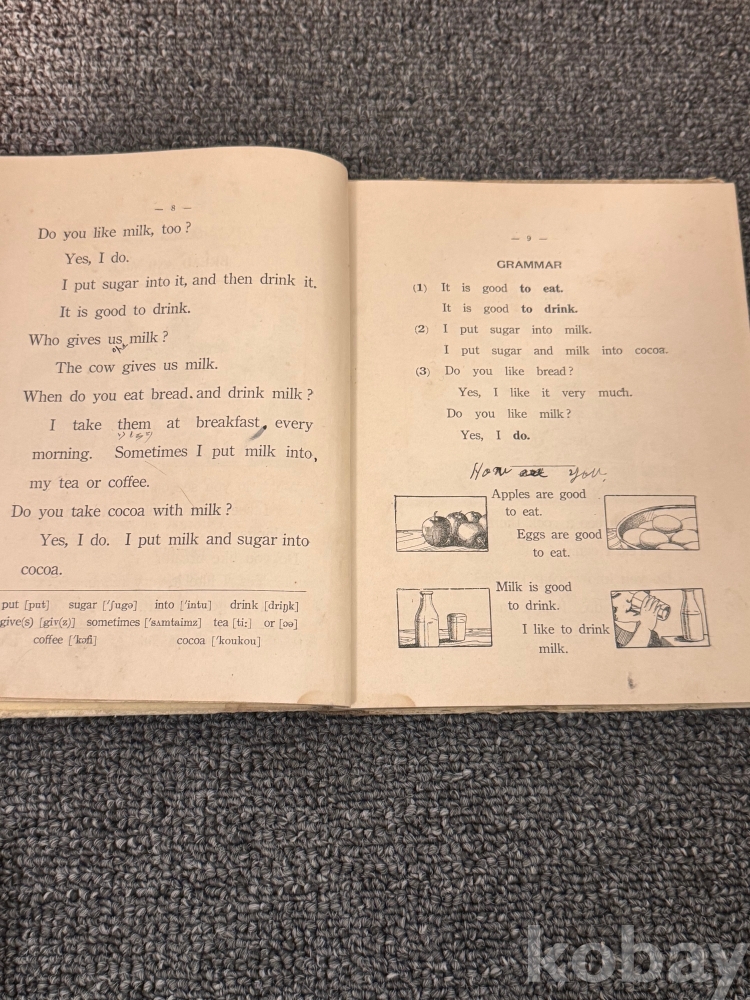 — 8 —
Do you like milk, too?
Yes, I do.
I put sugar into it, and then drink it.
It is good to drink.
Who gives us milk?
The cow gives us milk.
When do you eat bread and drink milk?
I take them at breakfast, every
morning. Sometimes I put milk into,
my tea or coffee.
Do you take cocoa with milk?
Yes, I do. I put milk and sugar into
cocoa.
put [put] sugar ['ʃugə] into ['intu] drink [driŋk]
give(s) [giv(z)] sometimes ['sʌmtaimz] tea [ti:] or [ɔə]
coffee ['kɔfi] cocoa ['koukou]
— 9 —
GRAMMAR
(1) It is good to eat.
It is good to drink.
(2) I put sugar into milk.
I put sugar and milk into cocoa.
(3) Do you like bread?
Yes, I like it very much.
Do you like milk?
Yes, I do.
How are you.
Apples are good
to eat.
Eggs are good
to eat.
Milk is good
to drink.
I like to drink
milk.
kobay